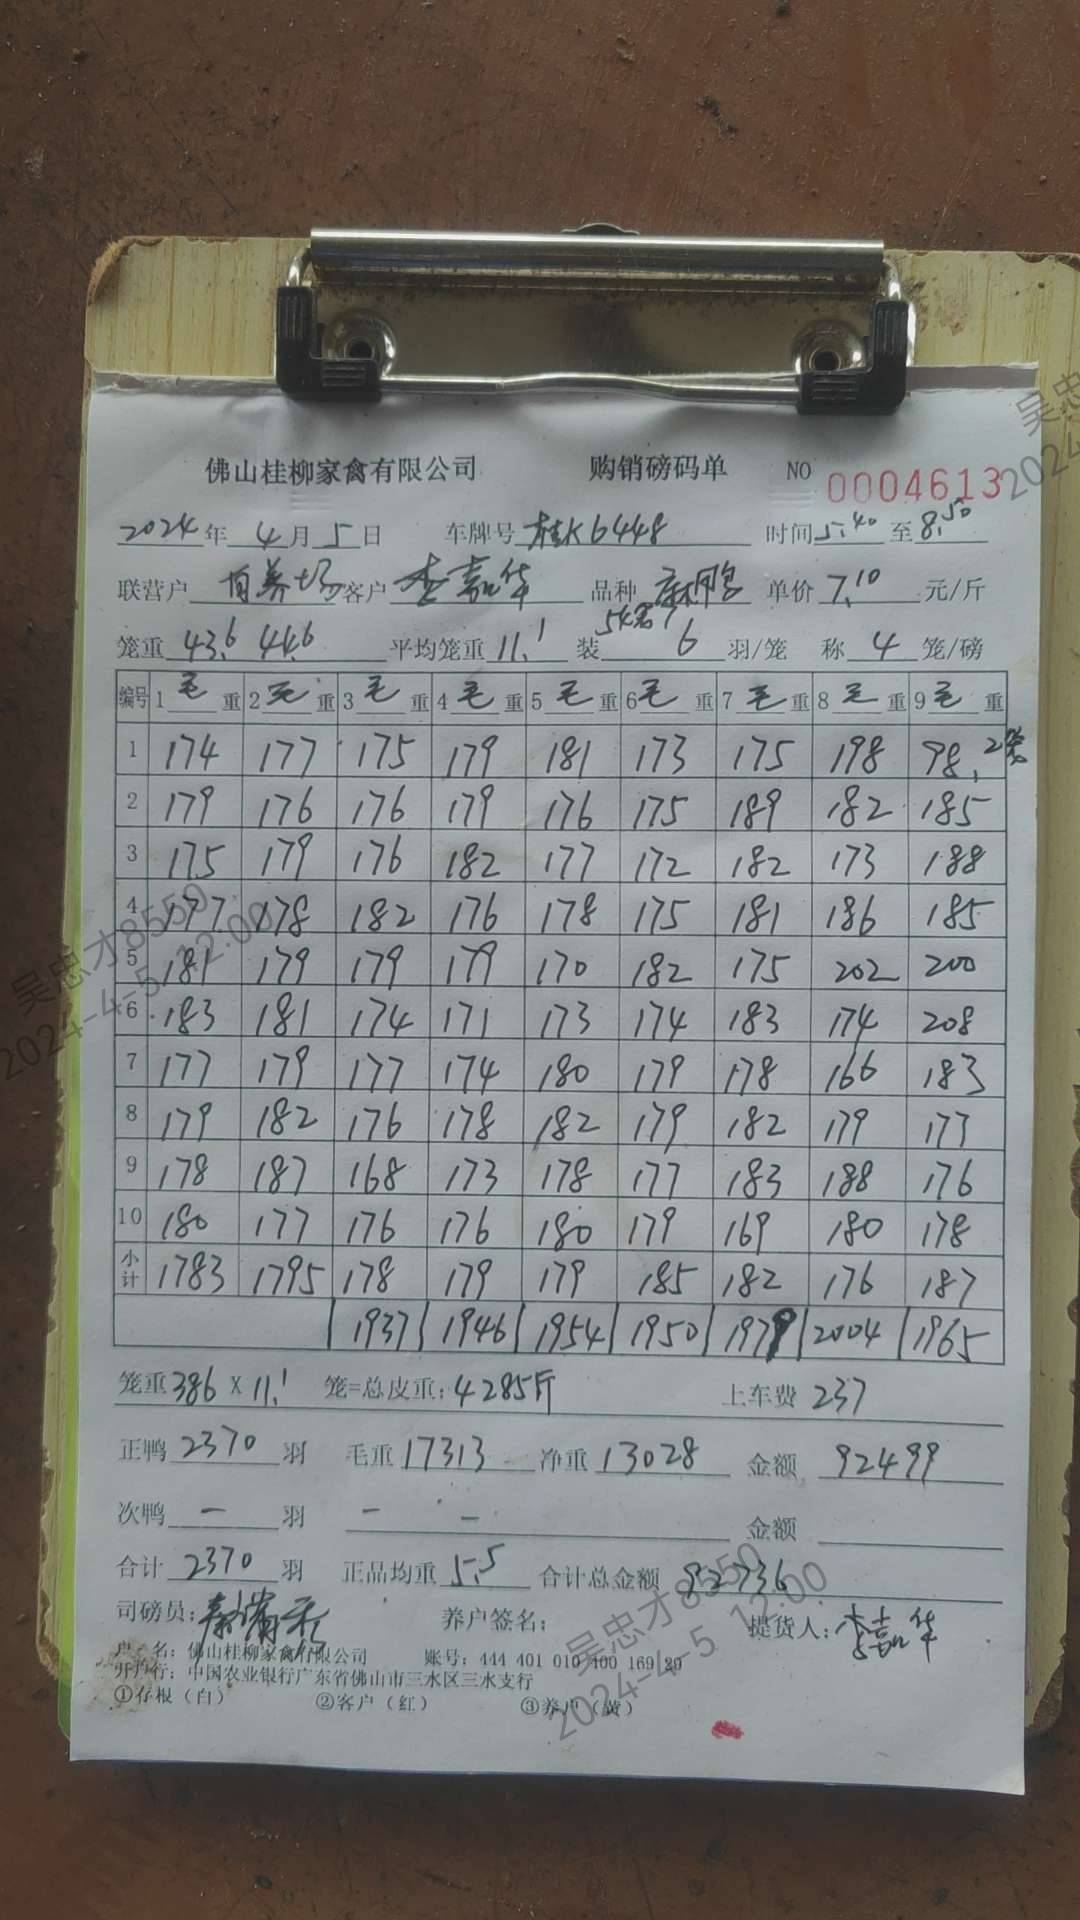 佛山桂柳家禽有限公司 购销磅码单 NO 0004613
2024年 4月 5日 车牌号 桂K6448 时间 5.40 至 8.50
联营户 自养场 客户 李嘉华 品种 麻鸭 单价 7.10 元/斤
笼重 43.6 44.6 平均笼重 11.1 装 6 羽/笼 称 4 笼/磅
编号 1毛重 2毛重 3毛重 4毛重 5毛重 6毛重 7毛重 8毛重 9毛重
1 174 177 175 179 181 173 175 198 98. 2笼
2 179 176 176 179 176 175 189 182 185
3 175 179 176 182 177 172 182 173 188
4 177 178 182 176 178 175 181 186 185
5 181 179 179 179 170 182 175 202 200
6 183 181 174 171 173 174 183 174 208
7 177 179 177 174 180 179 178 166 183
8 179 182 176 178 182 179 182 179 177
9 178 187 168 173 178 177 183 188 176
10 180 177 176 176 180 179 169 180 178
小计 1783 1795 178 179 179 185 182 176 187
1937 1946 1954 1950 1979 2004 1965
笼重 386 X 11.1 笼=总皮重: 4285斤 上车费 237
正鸭 2370 羽 毛重 17313 净重 13028 金额 92499
次鸭 — 羽 — — 金额
合计 2370 羽 正品均重 5.5 合计总金额 92736
司磅员: 养户签名: 提货人: 李嘉华
户 名: 佛山桂柳家禽有限公司 账号: 444 401 010 400 169 20
开户行: 中国农业银行广东省佛山市三水区三水支行
①存根(白) ②客户(红) ③养户(黄)
吴忠才8550
2024-4-5 12:00
吴忠才8550
2024-4-5 12:00
吴忠
2024